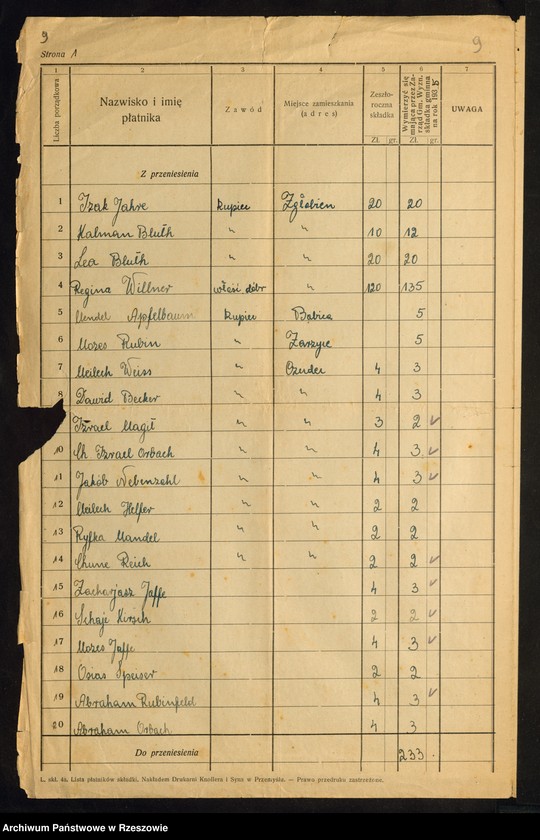 9
9
Strona 1
1 2 3 4 5 6 7
Liczba porządkowa | Nazwisko i imię płatnika | Zawód | Miejsce zamieszkania (adres) | Zeszłoroczna składka Zł. gr. | Wymierzyć się mająca przez Zarząd Gm. Wyzn. składka gminna na rok 1935 Zł. gr. | UWAGA
Z przeniesienia
1 Izak Jahre kupiec Zgłobien 20 20
2 Kalman Bluth " " 10 12
3 Lea Bluth " " 20 20
4 Regina Willner właśc dóbr " 120 135
5 Mendel Apfelbaum kupiec Babica 5
6 Mozes Rubin " Zarzyce 5
7 Meilech Weiss " Czudec 4 3
8 Dawid Becker " " 4 3
Izrael Magił " " 3 2 ✓
10 Ch Izrael Orbach " " 4 3 ✓
11 Jakób Nebenzahl " " 4 3 ✓
12 Meilech Helfer " " 2 2
13 Ryfka Mandel " " 2 2
14 Chune Reich " " 2 2 ✓
15 Zacharjasz Jaffe 4 3 ✓
16 Schaje Hirsch 2 2 ✓
17 Mozes Jaffe 4 3 ✓
18 Osias Speiser 2 2
19 Abraham Rubinfeld 4 3 ✓
20 Abraham Orbach 4 3
Do przeniesienia 233
L. skł. 4a. Lista płatników składki. Nakładem Drukarni Knollera i Syna w Przemyślu. — Prawo przedruku zastrzeżone.
Archiwum Państwowe w Rzeszowie